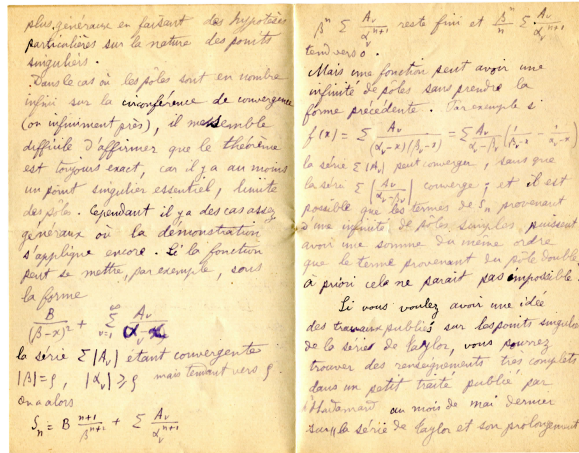 plus généraux en faisant des hypothèses
particulières sur la nature des points
singuliers.
Dans le cas où les pôles sont en nombre
infini sur la circonférence de convergence
(ou infiniment près), il me semble
difficile d'affirmer que le théorème
est toujours exact, car il y a au moins
un point singulier essentiel, limite
des pôles. Cependant il y a des cas assez
généraux où la démonstration
s'applique encore. Si la fonction
peut se mettre, par exemple, sous
la forme
B/(β-x)² + Σ_{ν=1}^{∞} A_ν/(α_ν-x)
la série Σ|A_ν| étant convergente
|β|=ρ, |α_ν| ≥ ρ mais tendant vers ρ.
on a alors
S_n = B (n+1)/β^{n+1} + Σ A_ν/α_ν^{n+1}
β^n Σ A_ν/α_ν^{n+1} reste fini et β^n/n Σ A_ν/α_ν^{n+1}
tend vers 0.
Mais une fonction peut avoir une
infinité de pôles sans prendre la
forme précédente. Par exemple si
f(x) = Σ A_ν/((α_ν-x)(β_ν-x)) = Σ A_ν/(α_ν-β_ν) (1/(β_ν-x) - 1/(α_ν-x))
la série Σ|A_ν| peut converger, sans que
la série Σ|A_ν/(α_ν-β_ν)| converge; et il est
possible que les termes de S_n provenant
d'une infinité de pôles simples, puissent
avoir une somme du même ordre
que le terme provenant du pôle double
à priori cela ne parait pas impossible.
Si vous voulez avoir une idée
des travaux publiés sur les points singuliers
de la série de Taylor, vous pourrez
trouver des renseignements très complets
dans un petit traité publié par
Hadamard au mois de mai dernier
sur "la série de Taylor et son prolongement